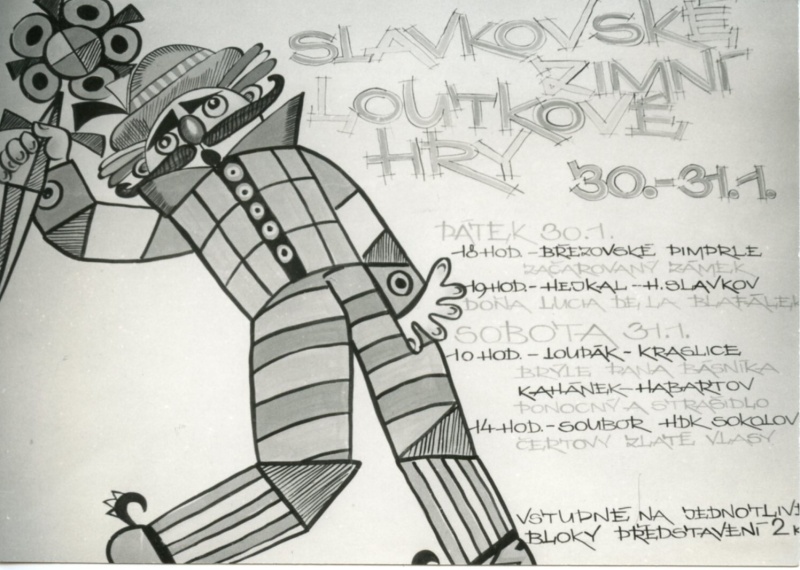 SLAVKOVSKÉ
ZIMNÍ
LOUTKOVÉ
HRY
30.-31.1.
PÁTEK 30.1.
18 HOD. - BŘEZOVSKÉ PIMPRLE
ZAČAROVANÝ ZÁMEK
19 HOD. - HEJKAL - H. SLAVKOV
DOŇA LUCIA DE LA
SOBOTA 31.1.
10 HOD. - LOUDÁK - KRASLICE
BRÝLE PANA BÁSNÍKA
KAHÁNEK - HABARTOV
PONOCNÝ A STRAŠIDLO
14 HOD. - SOUBOR HDK SOKOLOV
ČERTOVY ZLATÉ VLASY
VSTUPNÉ NA JEDNOTLIVÉ
BLOKY PŘEDSTAVENÍ 2 K